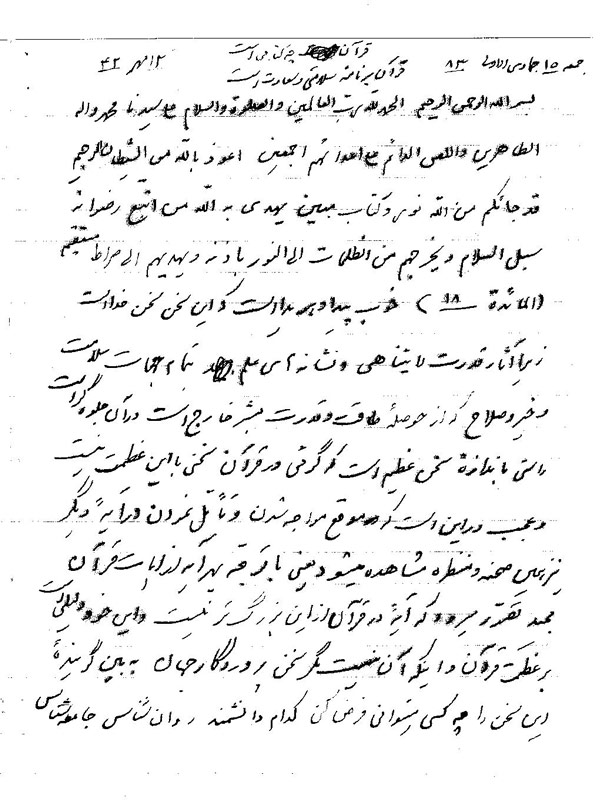 قرآن چه کتابی است
جمعه ۱۵ جمادی الاولی ۸۳ قرآن برنامه سلامتی و سعادت است ۱۲ مهر ۴۲
بسم الله الرحمن الرحیم الحمد لله رب العالمین والصلوة والسلام علی سیدنا محمد واله
الطاهرین واللعن الدائم علی اعدائهم اجمعین اعوذ بالله من الشیطان الرجیم
قد جائکم من الله نور وکتاب مبین یهدی به الله من اتبع رضوانه
سبل السلام ویخرجهم من الظلمات الی النور باذنه ویهدیهم الی صراط مستقیم
(المائدة ۱۸) خوب پیدا و هویداست که این سخن سخن خداست
زیرا آثار قدرت لایتناهی و نشانه های علم بتمام جهات سلامت
و خیر و صلاح که از حوصله طاقت و قدرت بشر خارج است در آن جلوه گر است
راستی باندازه سخن عظیم است که گوئی در قرآن سخنی باین عظمت نیست
و عجب در این است که موقع مواجه شدن و تأمل نمودن در آیه دیگر
نیز همین صحنه و منظره مشاهده میشود یعنی با توجه بهر آیه از آیات قرآن
مجید تصور میرود که آیه در قرآن از این بزرگ تر نیست و این خود دلیلی است
بر عظمت قرآن و اینکه آن نیست مگر سخن پروردگار جهان به بین گوینده
این سخن را چه کسی میتوانی فرض کن کدام دانشمند روان شناس جامعه شناس